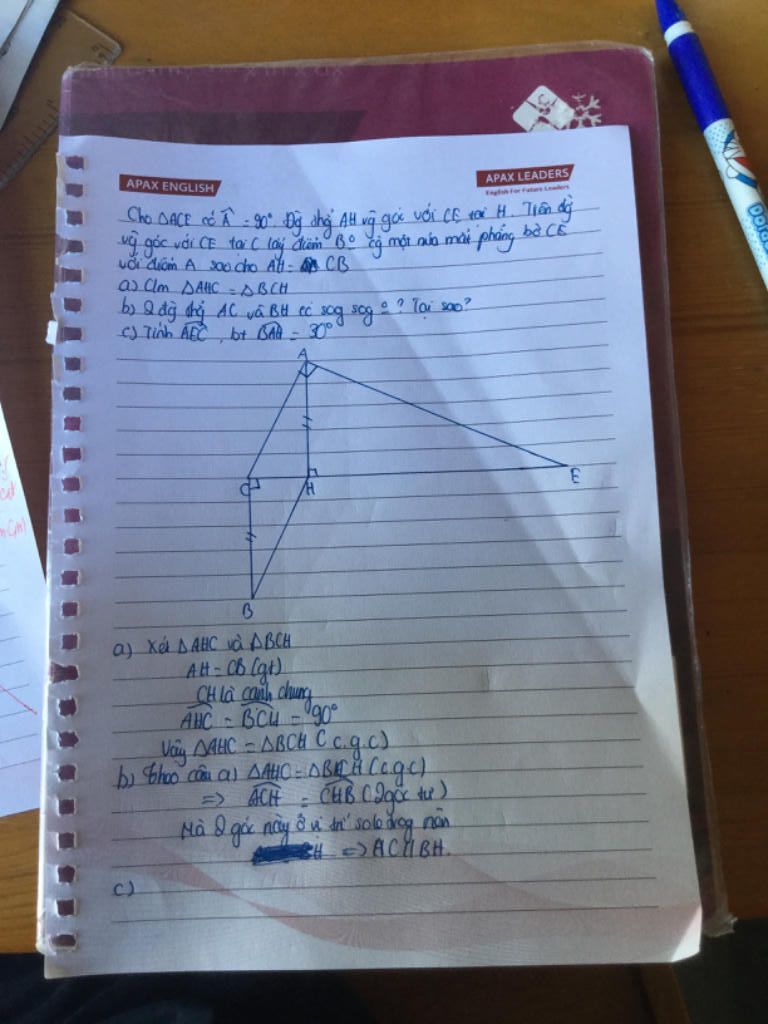 APAX ENGLISH
APAX LEADERS
English For Future Leaders
Cho ΔACE có Â = 90°. Đg thg AH vg góc với CE tại H. Trên đg
vg góc với CE tại C lấy điểm B° cg một nửa mặt phẳng bờ CE
với điểm A sao cho AH = CB
a) Cm ΔAHC = ΔBCH
b) 2 đg thg AC và BH có sog sog ° ? Tại sao?
c) Tính AEC, bt BAH = 30°
A
C
H
E
B
a) Xét ΔAHC và ΔBCH
AH = CB (gt)
CH là cạnh chung
AHC = BCH = 90°
Vậy ΔAHC = ΔBCH (c.g.c)
b) Theo câu a) ΔAHC = ΔBCH (c.g.c)
=> ACH = CHB (2 góc tư)
Mà 2 góc này ở vị trí sole trog nên
=> AC // BH.
c)